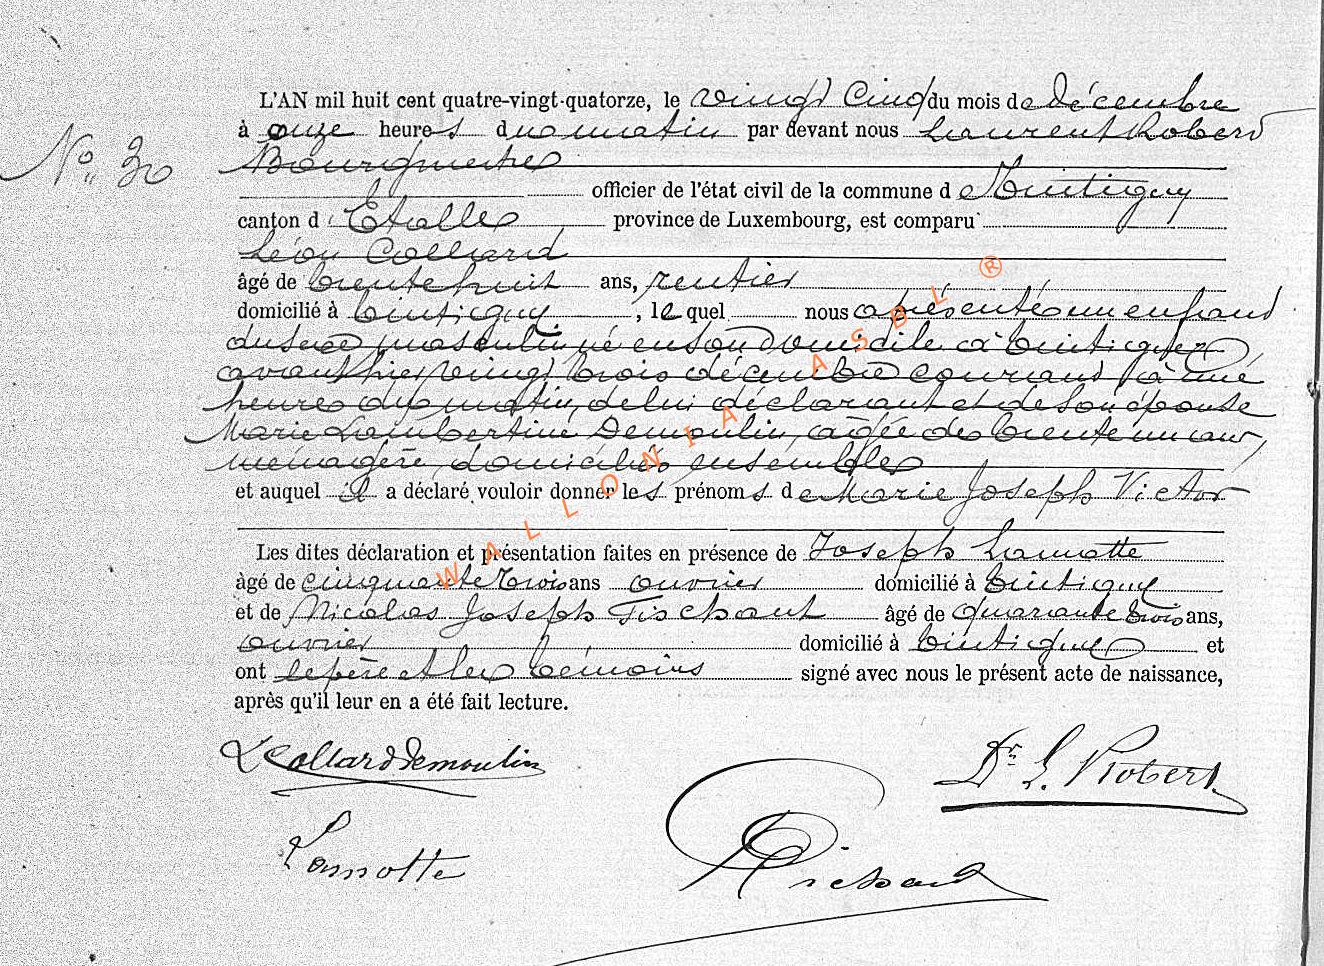 L'AN mil huit cent quatre-vingt-quatorze, le vingt cinq du mois de décembre
N° 30
à onze heures du matin par devant nous Laurent Robert
Bourgmestre
officier de l'état civil de la commune de Tintigny
canton d'Etalle province de Luxembourg, est comparu
Léon Collard
âgé de trente huit ans, rentier
domicilié à Tintigny, lequel nous a présenté un enfant
du sexe masculin, né en son domicile à Tintigny,
avant hier vingt trois décembre courant, à une
heure du matin, de lui déclarant et de son épouse
Marie Lambertine Demoulin, agée de trente un ans,
ménagère, domiciliés ensemble
et auquel il a déclaré vouloir donner les prénoms de Marie Joseph Victor
Les dites déclaration et présentation faites en présence de Joseph Lamotte
âgé de cinquante trois ans ouvrier domicilié à Tintigny
et de Nicolas Joseph Pischaut âgé de quarante trois ans,
ouvrier domicilié à Tintigny et
ont le père et les témoins signé avec nous le présent acte de naissance,
après qu'il leur en a été fait lecture.
L Collard Demoulin
Dr. L. Robert
Lamotte
WALLONIA ASBL ®